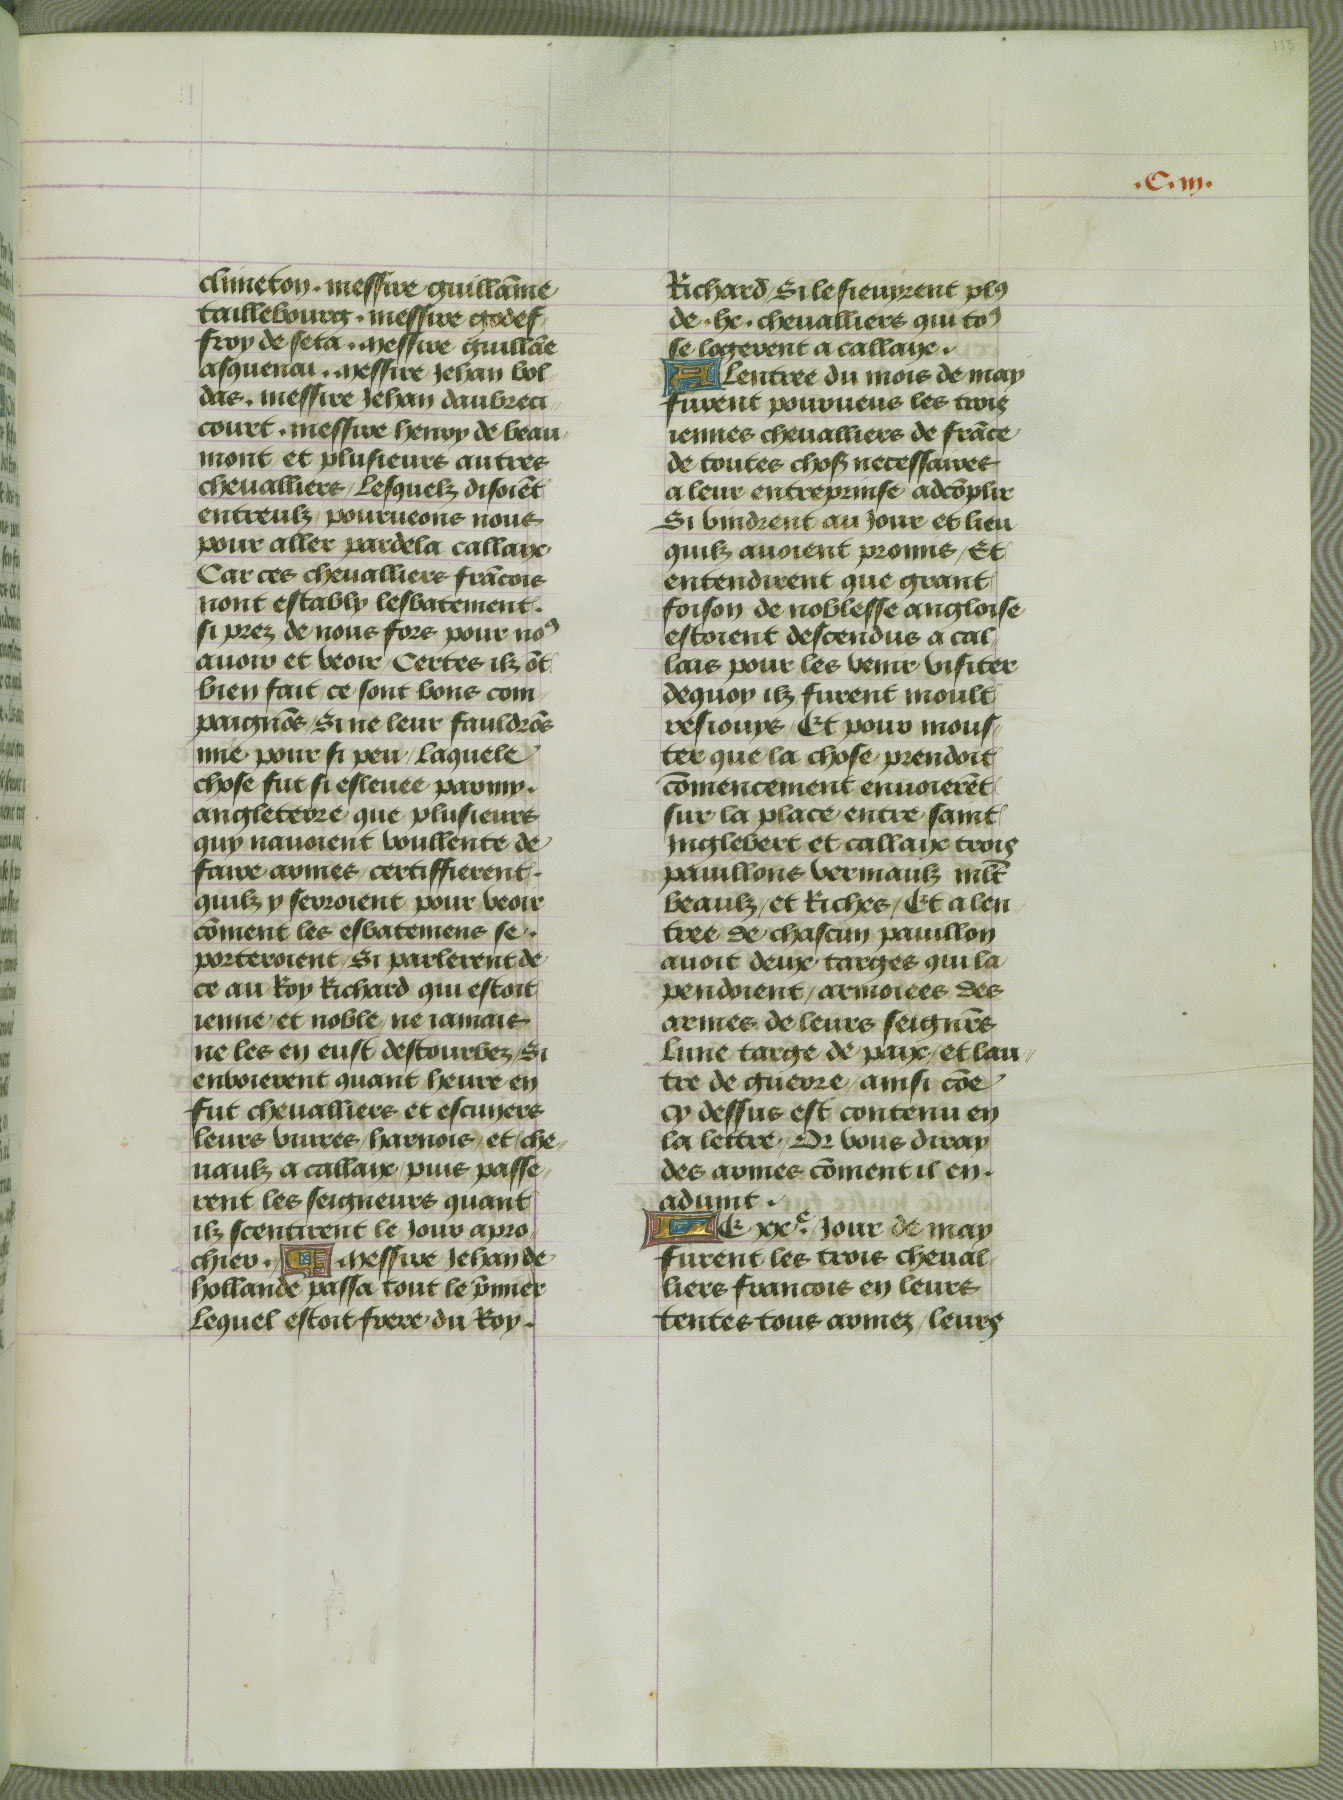 113
.C. iij.
climeton . messire guillāme
taillebourg . messire godef
froy de seta . messire guillāe
asquenai . messire Jehan bol
das . messire Jehan daubreci
court . messire henry de beau
mont et plusieurs autres
chevalliers / Lesquelz disoiēt
entreulz / pourveons nous
pour aller pardela callaix
Car ces chevalliers frācois
nont estably lesbatement .
si prez de nous fors pour noꝰ
avoir et veoir / Certes ilz ōt
bien fait / ce sont bons com
paignōs / Si ne leur fauldrōs
mie pour si peu / Laquele
chose fut si eslevee parmy .
angleterre que plusieurs
quy navoient voullente de
faire armes / certiffierent .
quilz y serroient pour veoir
cōment les esbatemens se .
porteroient / Si parlerent de
ce au Roy Richard qui estoit
ienne et noble / ne iamais
ne les en eust destourbez / Si
envoierent quant heure en
fut chevalliers et escuyers
leurs vivres / harnois / et che
vaulz a callaix / puis passe
rent les seigneurs quant
ilz scentirent le Jour apro
chier . Messire Jehan de
hollande passa tout le p̄mier
Lequel estoit frere du Roy .
Richard / Si le sievyrent plꝰ
de . lx . chevalliers qui toꝰ
se logerent a callaix .
A Lentree du mois de may
furent pourveus les trois
iennes chevalliers de frāce
de toutes choses necessaires
a leur entreprinse adcōplir
Si vindrent au Jour et lieu
quilz avoient promis / Et
entendirent que grant
foison de noblesse angloise
estoient descendus a cal
lais pour les venir visiter
dequoy ilz furent moult
resiouys / Et pour mous
ter que la chose prendoit
cōmencement envoierēt
sur la place entre saint
Jnglebert et callaix trois
pavillons vermaulz ml̄t
beaulz / et Riches / Et a len
tree de chascun pavillon
avoit deux targes qui la
pendoient / armoiees des
armes de leurs seignr̄s
Lune targe de paix / et lau
tre de guerre / ainsi cōe
cy dessus est contenu en
la lettre / Or vous diray
des armes cōment il en .
advint .
LE xxe. Jour de may
furent les trois cheval
liers francois en leurs
tentes tous armez / leurs